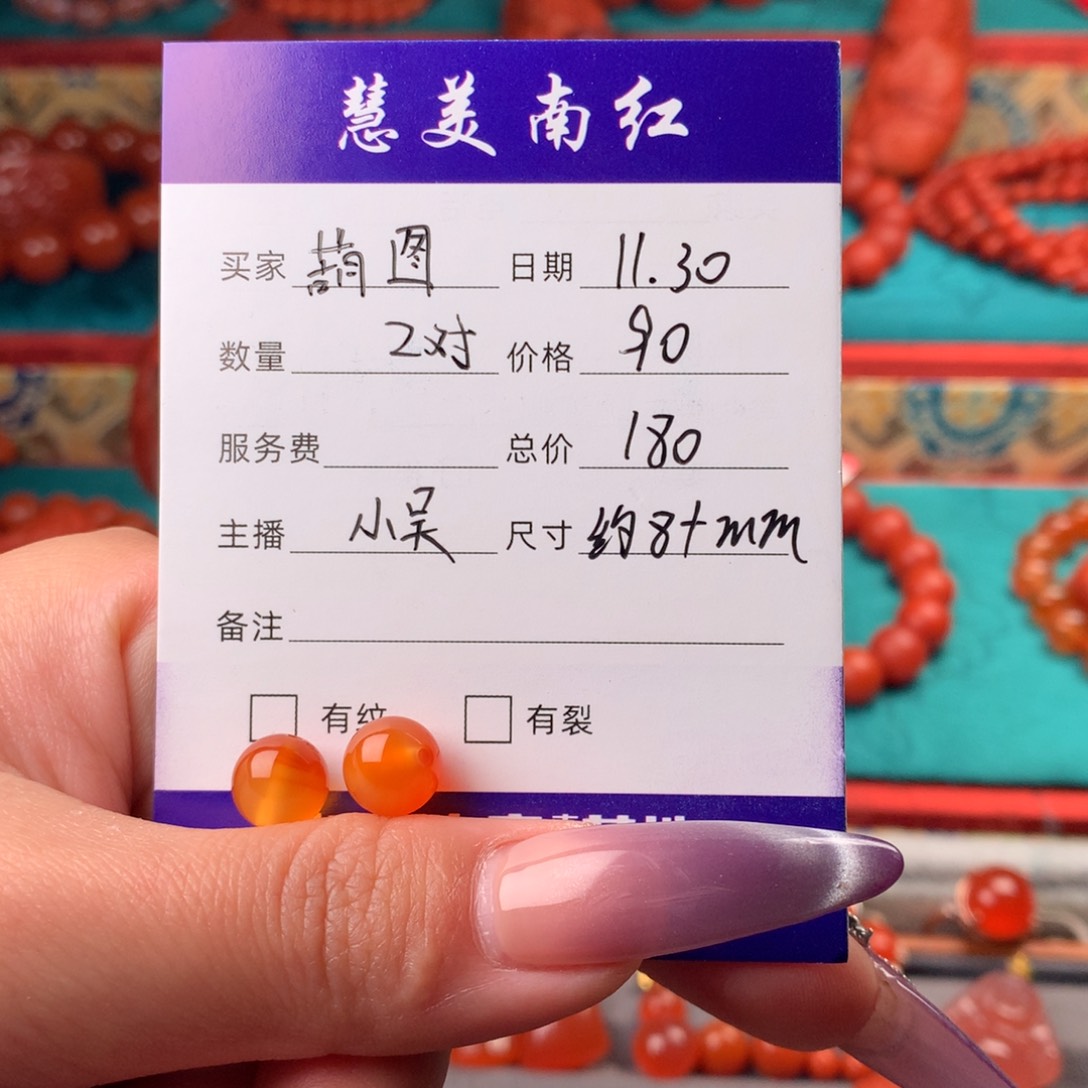 慧美南红
买家 葫图 日期 11.30
数量 2对 价格 90
服务费 总价 180
主播 小吴 尺寸 约8+mm
备注
有纹 有裂